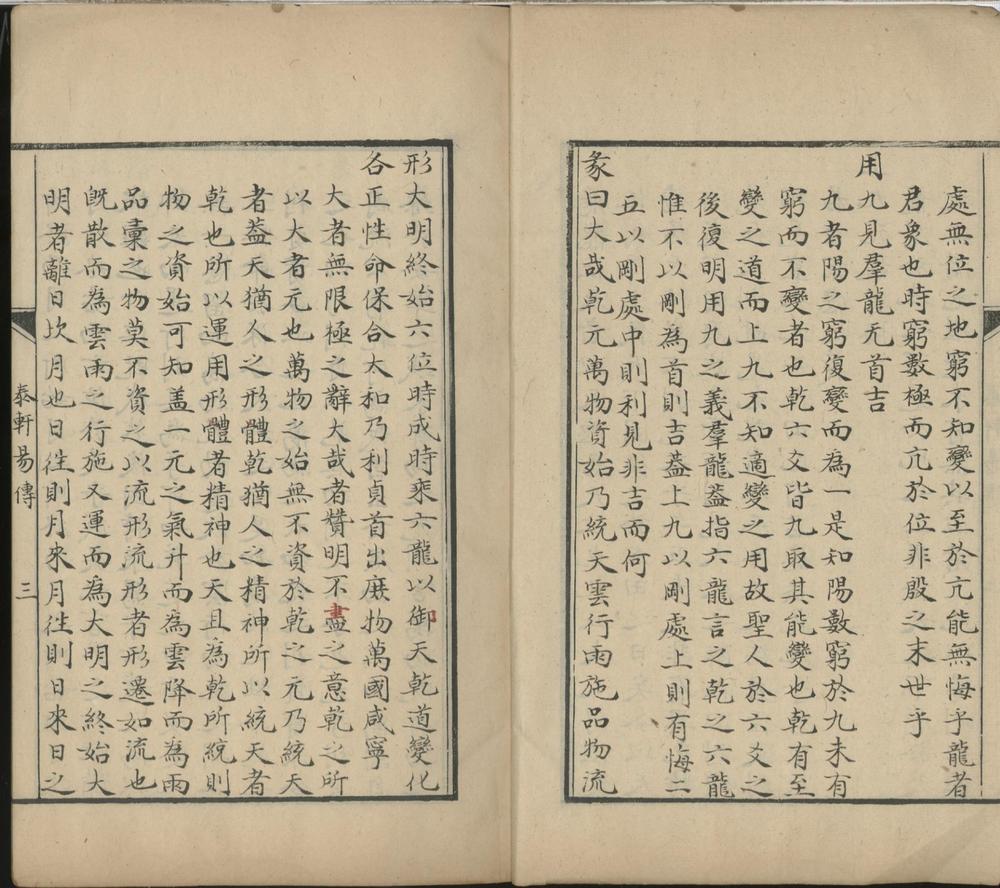 處無位之地窮不知變以至於亢能無悔乎龍者
君象也時窮數極而亢於位非殷之末世乎
用九見羣龍无首吉
九者陽之窮復變而為一是知陽數窮於九未有
窮而不變者也乾六爻皆九取其能變也乾有至
變之道而上九不知適變之用故聖人於六爻之
後復明用九之義羣龍葢指六龍言之乾之六龍
惟不以剛為首則吉葢上九以剛處上則有悔二
五以剛處中則利見非吉而何
彖曰大哉乾元萬物資始乃統天雲行雨施品物流
形大明終始六位時成時乘六龍以御天乾道變化
各正性命保合太和乃利貞首出庶物萬國咸寧
大者無限極之辭大哉者贊明不盡之意乾之所
以大者元也萬物之始無不資於乾之元乃統天
者葢天猶人之形體乾猶人之精神所以統天者
乾也所以運用形體者精神也天且為乾所統則
物之資始可知葢一元之氣升而為雲降而為雨
品彙之物莫不資之以流形流形者形還如流也
既散而為雲雨之行施又運而為大明之終始大
明者離日坎月也日往則月來月往則日來日之
泰軒易傳 三